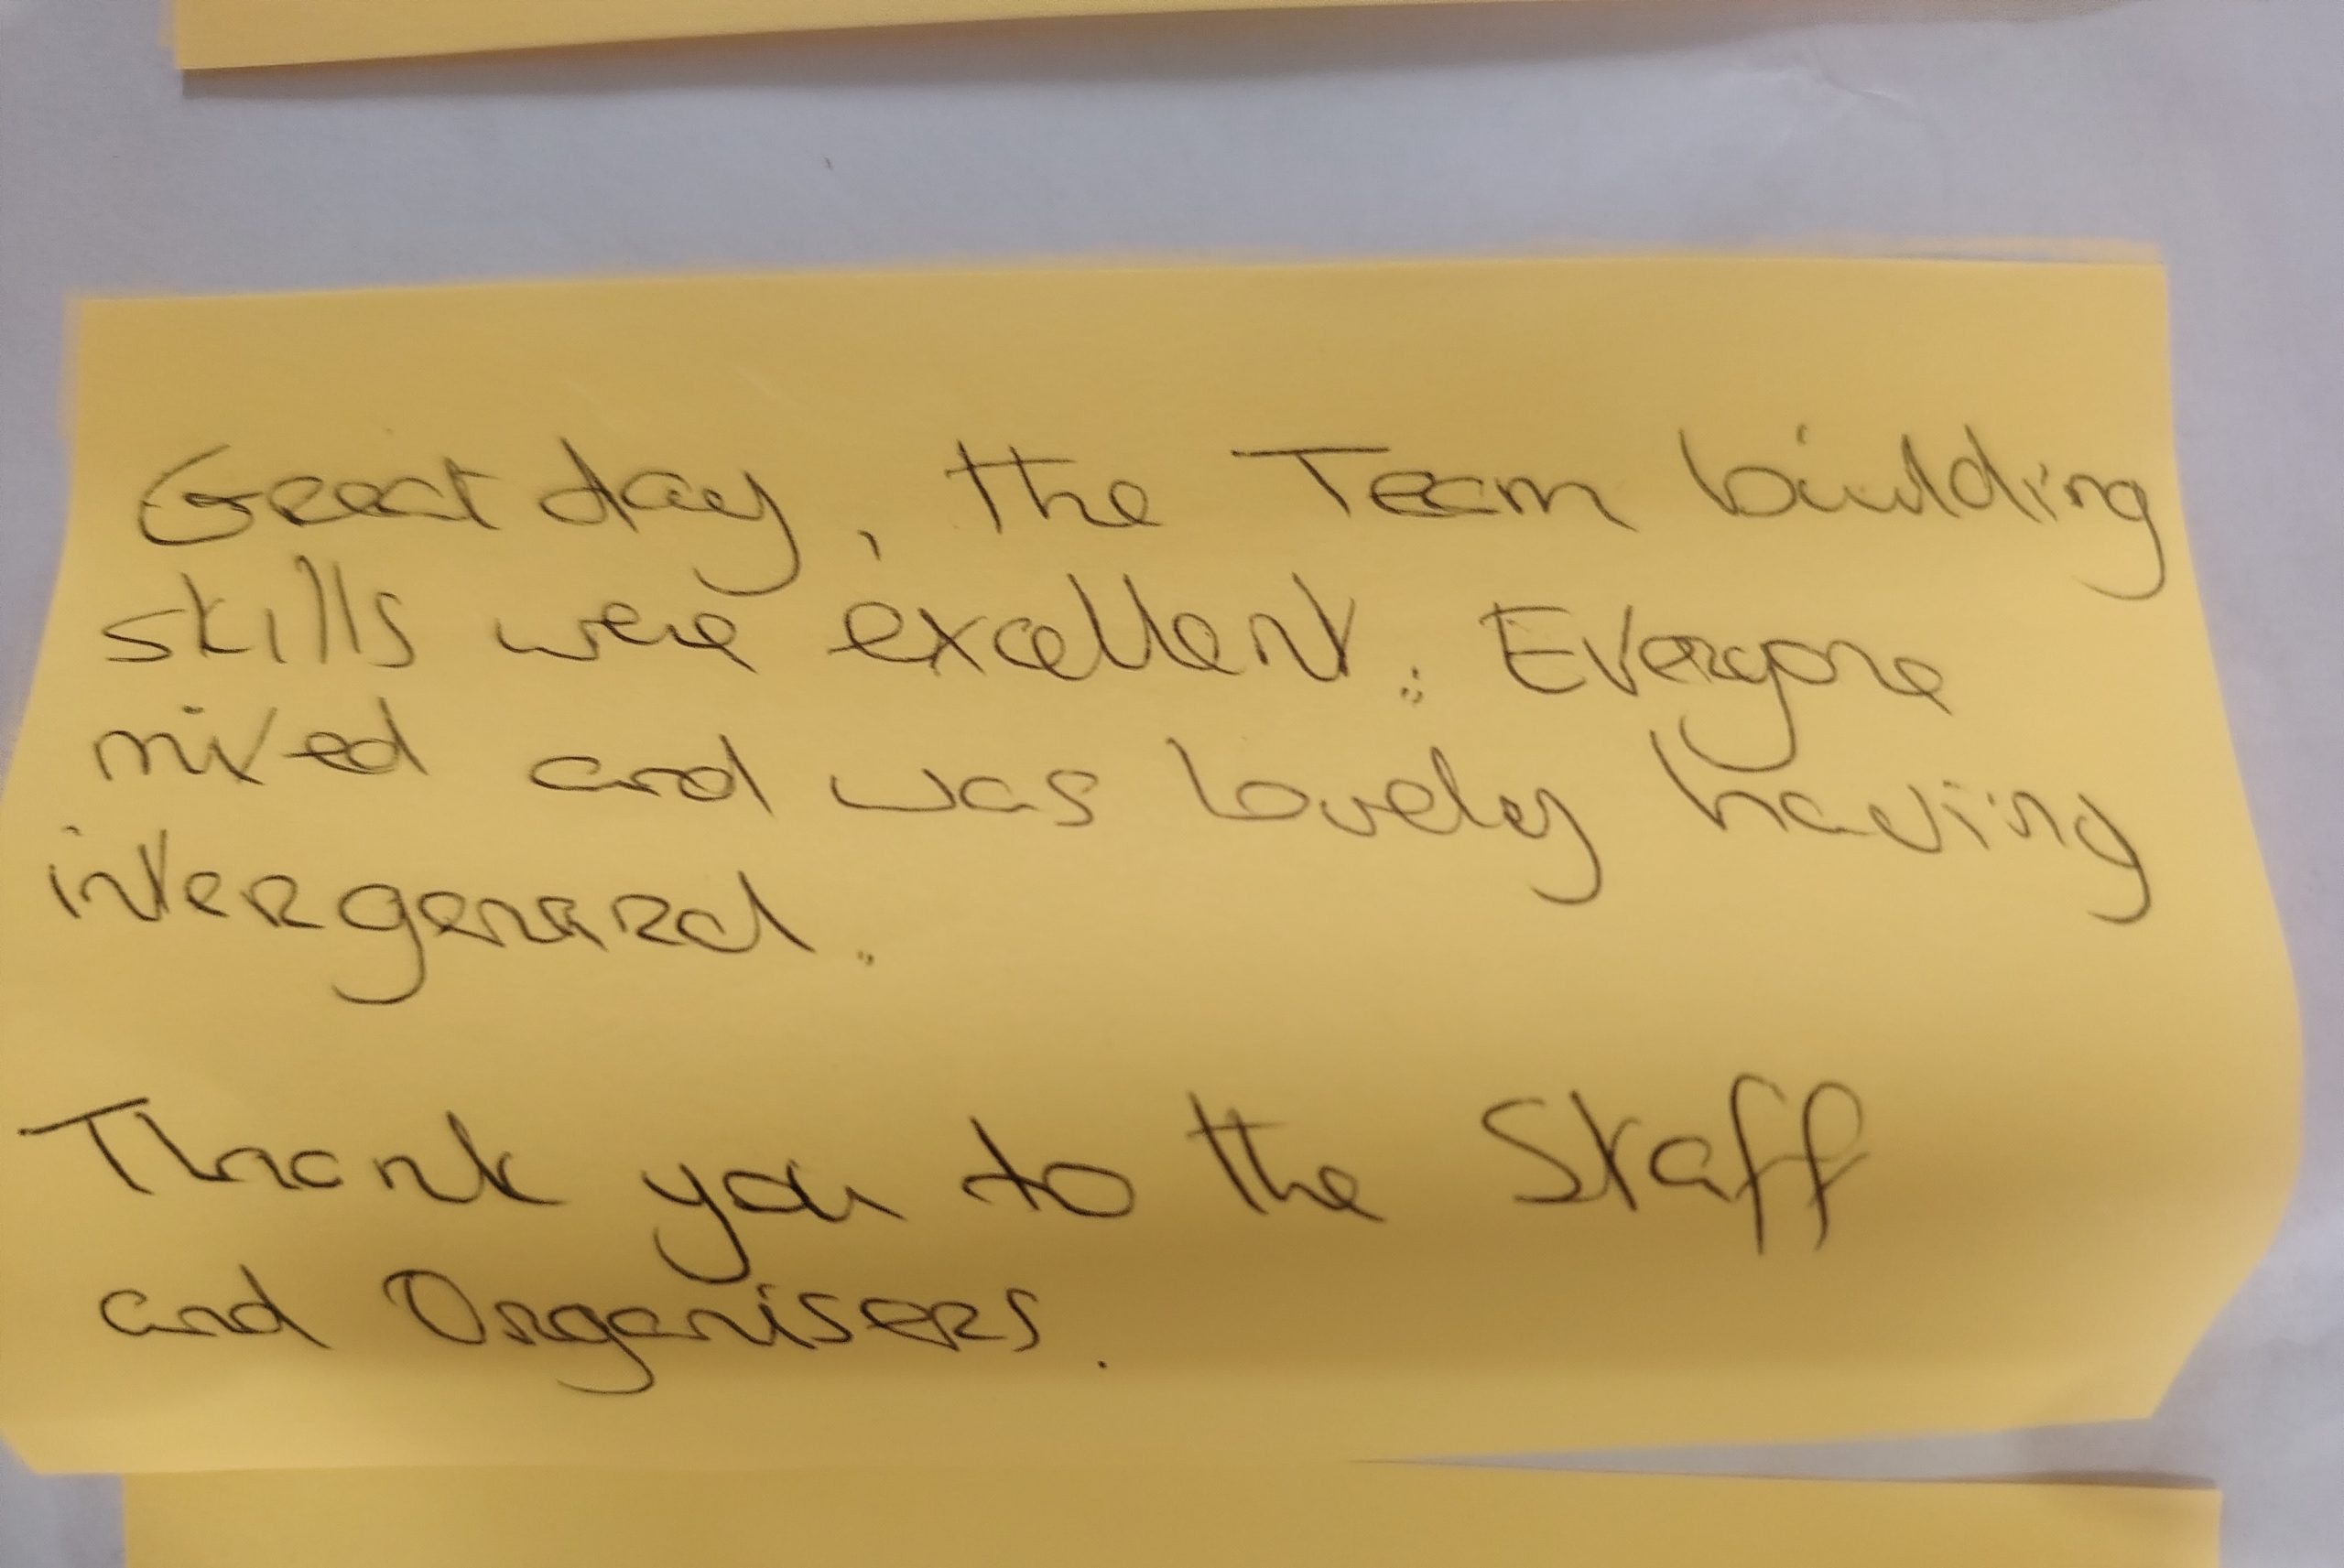 Great day, the Team building
skills were excellent. Everyone
mixed and was lovely having
intergenerad.
Thank you to the Staff
and Organisers.